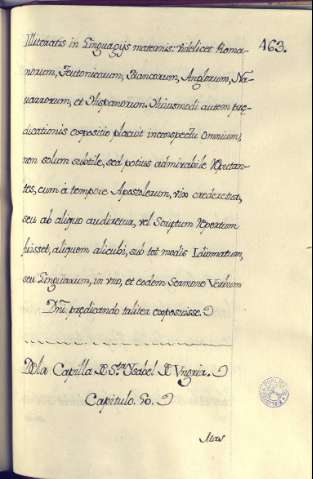 463.
Illiteratis in Linguagijs maternis: videlicet Roma-
norum, Teutonicorum, Francorum, Anglorum, Na-
uarrorum, et Hispanorum. Huiusmodi autem præ-
dicationis compositio placuit in conspectu omnium,
non solum subtile, sed potius admirabile reputan-
tes, cum à tempore Apostolorum, vix crederetur,
seu ab aliquo audiretur, vel Scriptum repertum
fuisset, aliquem alicubi, sub tot modis
seu Linguarum, in vno, et eodem Sermone Verbum
Dni. prædicando taliter composuisse.
De la Capilla de Sta. Ysabel de Vngria.
Capitulo. 80.
Mas